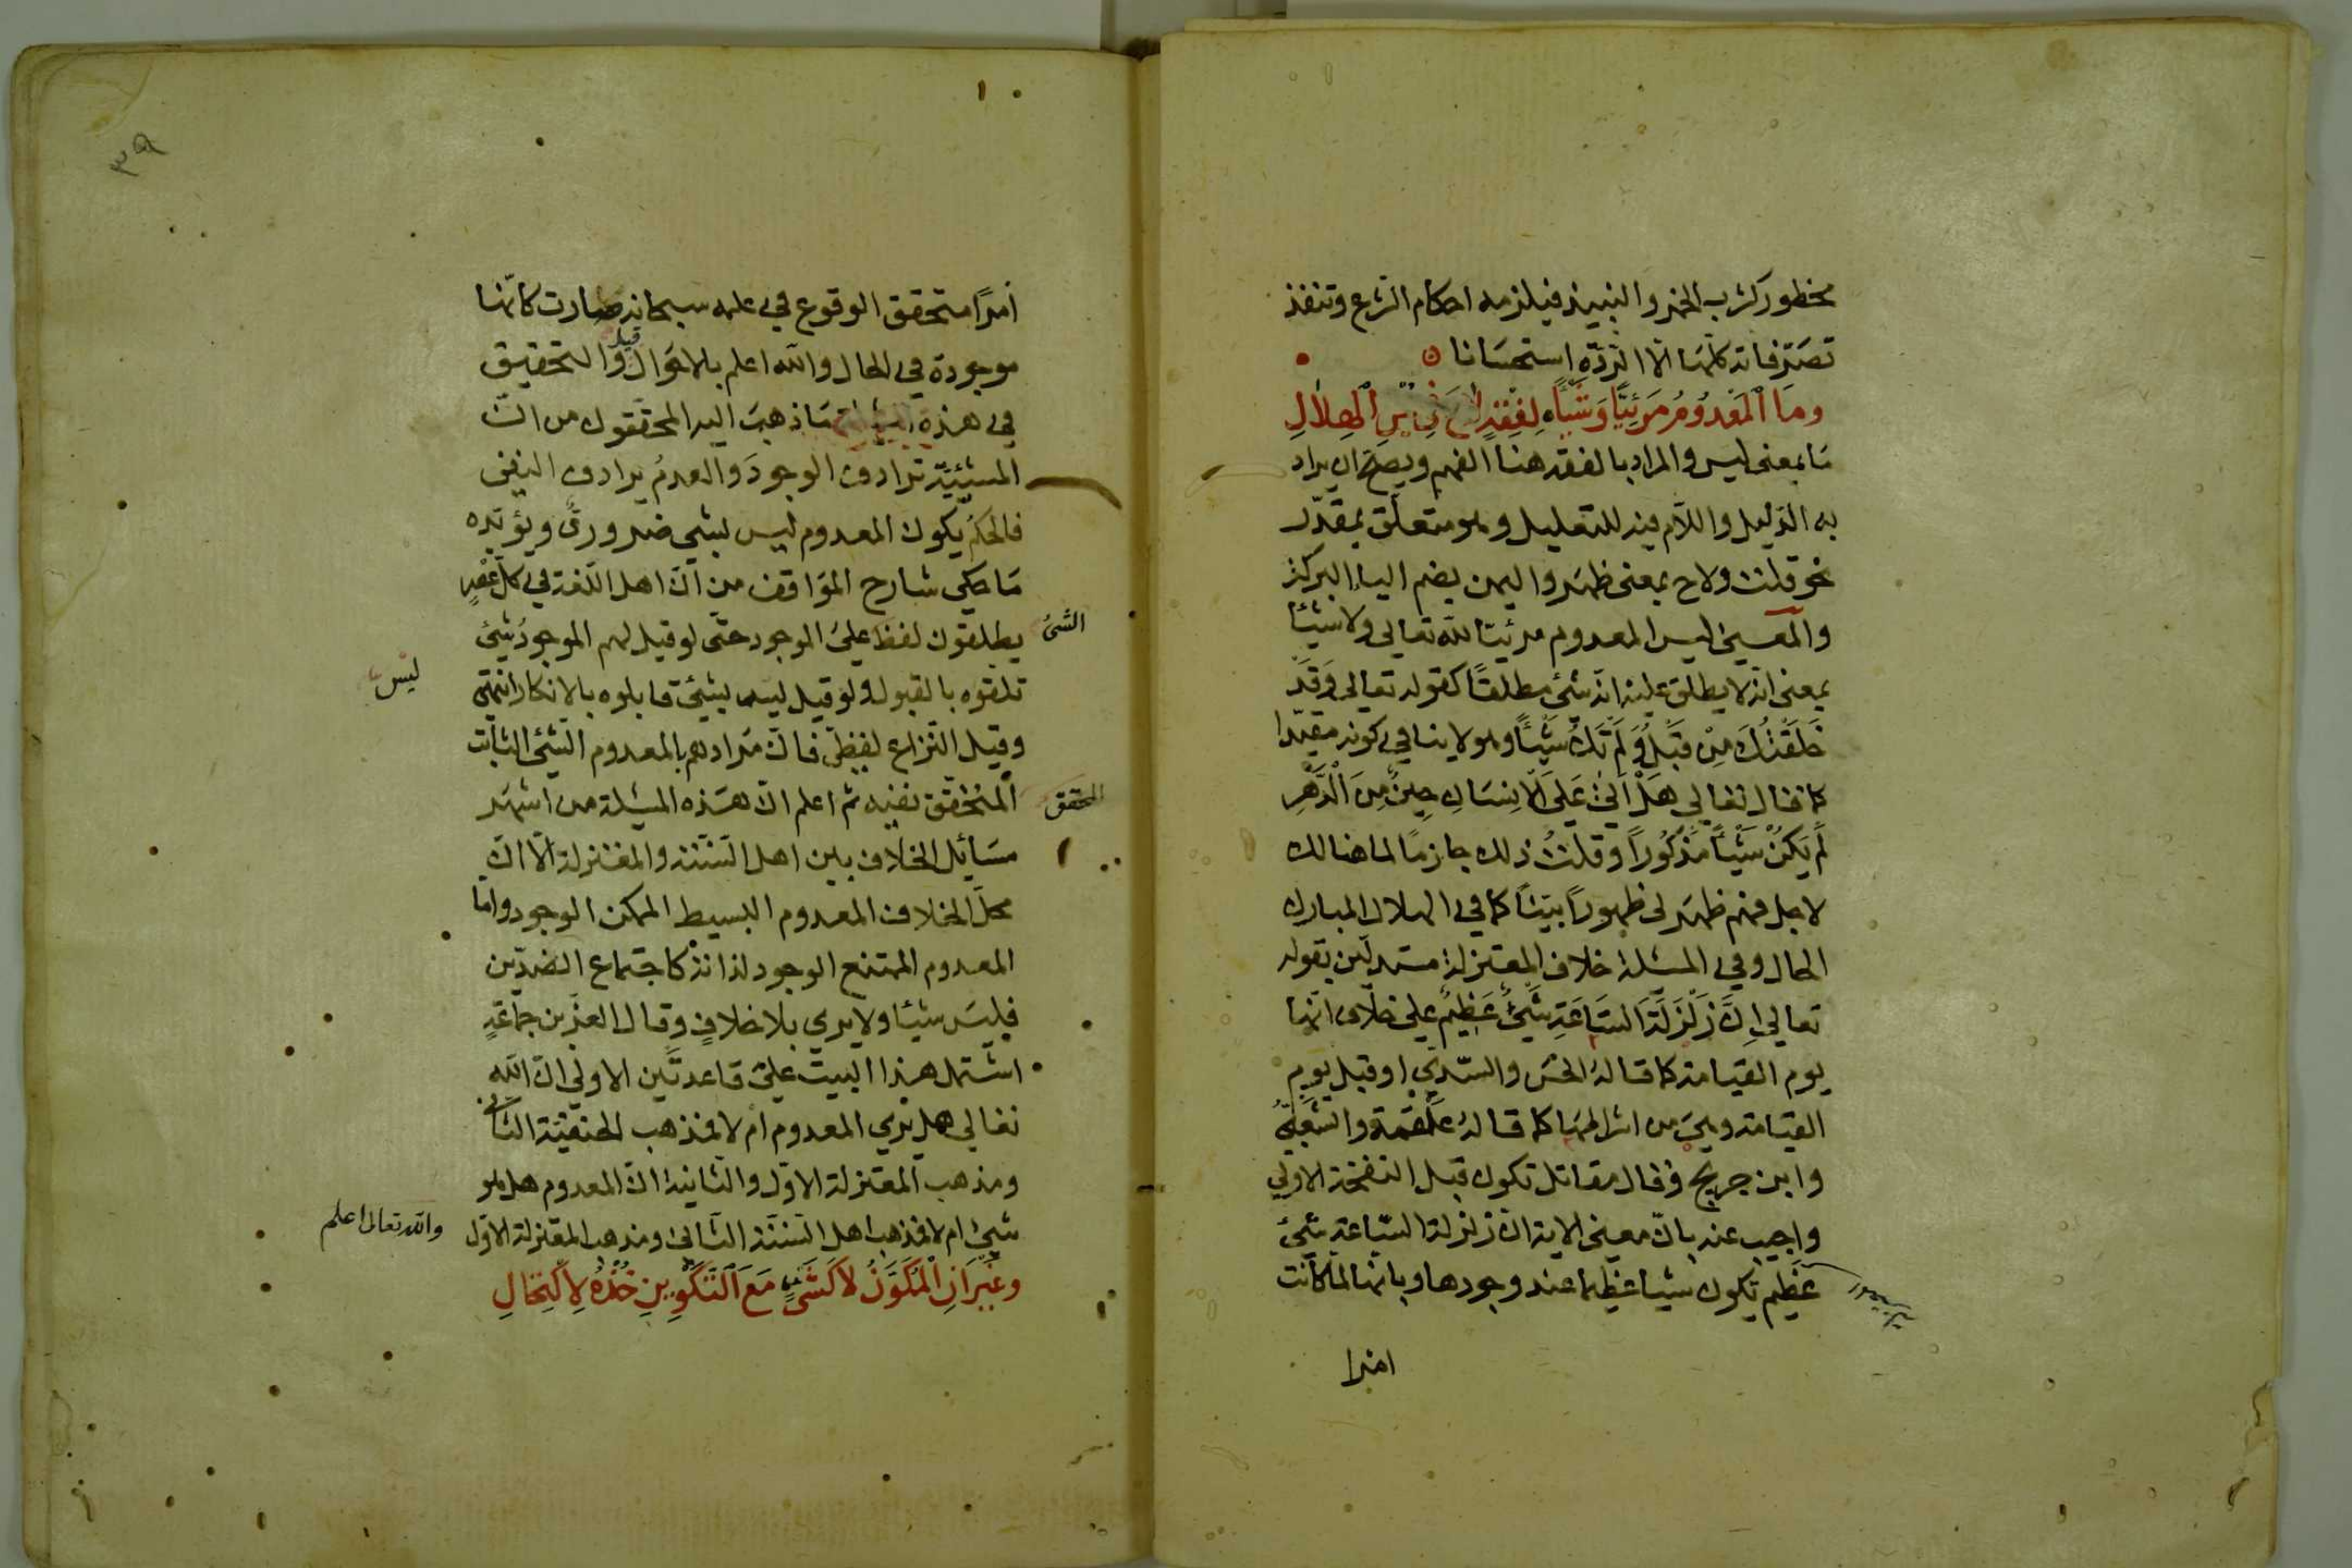 محظور كشرب الخمر والنبيذ فيلزمه احكام الشرع وتنفذ
تصرّفاته كلّها الّا الردّه استحسانا
وما المعدوم مرئيّا وشيئًا لفقه لاح فى يمن الهلال
مَا بمعنى ليس والمراد بالفقه هنا الفهم ويصحّ ان يراد
به الدّليل واللّام فيه للتعليل وهو متعلّق بمقدّر
نحو قلت ولاح بمعنى ظهر واليمن بضم الياء البركة
والمعنى ليس المعدوم مرئيّا لله تعالى ولا شيئًا
بمعنى انه لا يطلق عليه انّه شئ مطلقًا كقوله تعالى وَقَدْ
خَلَقْتُكَ مِنْ قَبْلُ وَلَمْ تَكُ شَيْئًا وهو لا ينافي كونه مقيّدا
كما قال تعالي هَلْ اَتىٰ عَلَى الْاِنسَانِ حِينٌ مِنَ الدَّهْرِ
لَمْ يَكُنْ شَيْئًا مَذْكُورًا وقلتُ ذلك جازمًا لما هنالك
لاجل فهم ظهر لى ظهورًا بيّنًا كما في الهلال المبارك
الحال وفي المسئلة خلاف المعتزلة مستدلّين بقوله
تعالي اِنَّ زَلْزَلَةَ السَّاعَةِ شَيْءٌ عَظِيمٌ علي خلاف انّها
يوم القيامة كما قالهُ الحسن والسّدّي او قبل يوم
القيامة وهي من اشراطها كما قالهُ علقمة والشّعبيّ
وابن جريج وقال مقاتل تكون قبل النفخة الاولي
واجيب عنه بانّ معنى الاية انّ زلزلة السّاعة شئ
عظيم تكون شيئا عظيما عند وجودها وبانها لما كانت
امرا
٣٩
اَمرًا متحقق الوقوع في علمه سبحانه صارت كانّها
موجودة في الحال والله اعلم بالاحوال قيل والتحقيق
في هذه المسئلة مَا ذهبَ اليه المحققون من انّ
المشيئيّة ترادف الوجودَ والعدمُ يرادف النفى
فالحكمُ بكون المعدوم ليس بشئ ضروريّ ويؤيّده
مَا حكى شارح المواقف من انّ اهل اللّغة في كلّ عصرٍ
يطلقون لفظ علي الموجود حتّى لو قيل لهم الموجود شئ
الشئ
تلقوه بالقبول ولو قيل ليس بشئ قابلوه بالانكار انتهى
ليس
وقيل النّزاع لفظىّ فانّ مرادهم بالمعدوم الشّئ الثابت
المتحقق نفيه ثم اعلم انّ هذه المسئلة من اشهر
المحقق
مسَائل الخلاف بين اهل السّنّة والمعتزلة الّا انّ
محلّ الخلاف المعدوم البسيط الممكن الوجود وامّا
المعدوم الممتنع الوجود لذاته كاجتماع الضدّين
فليسَ شيئا ولا يري بلا خلافٍ وقال العزّ بن جماعَةٍ
اشتمل هذا البيت علي قاعدتَين الاولي انّ الله
تعالي هل يري المعدوم ام لا فمذهب الحنفيّة الثّاني
ومذهب المعتزلة الاوّل والثّانية انّ المعدوم هل هو
شئ ام لا فمذهب اهل السّنّة الثّانى ومذهب المعتزلة الاوّل
والله تعالى اعلم
وغَيْرَانِ الْمُكَوَّنُ لَا كَشَيْءٍ مَعَ التَّكْوِينِ خُذْهُ لِاكْتِحَالِ